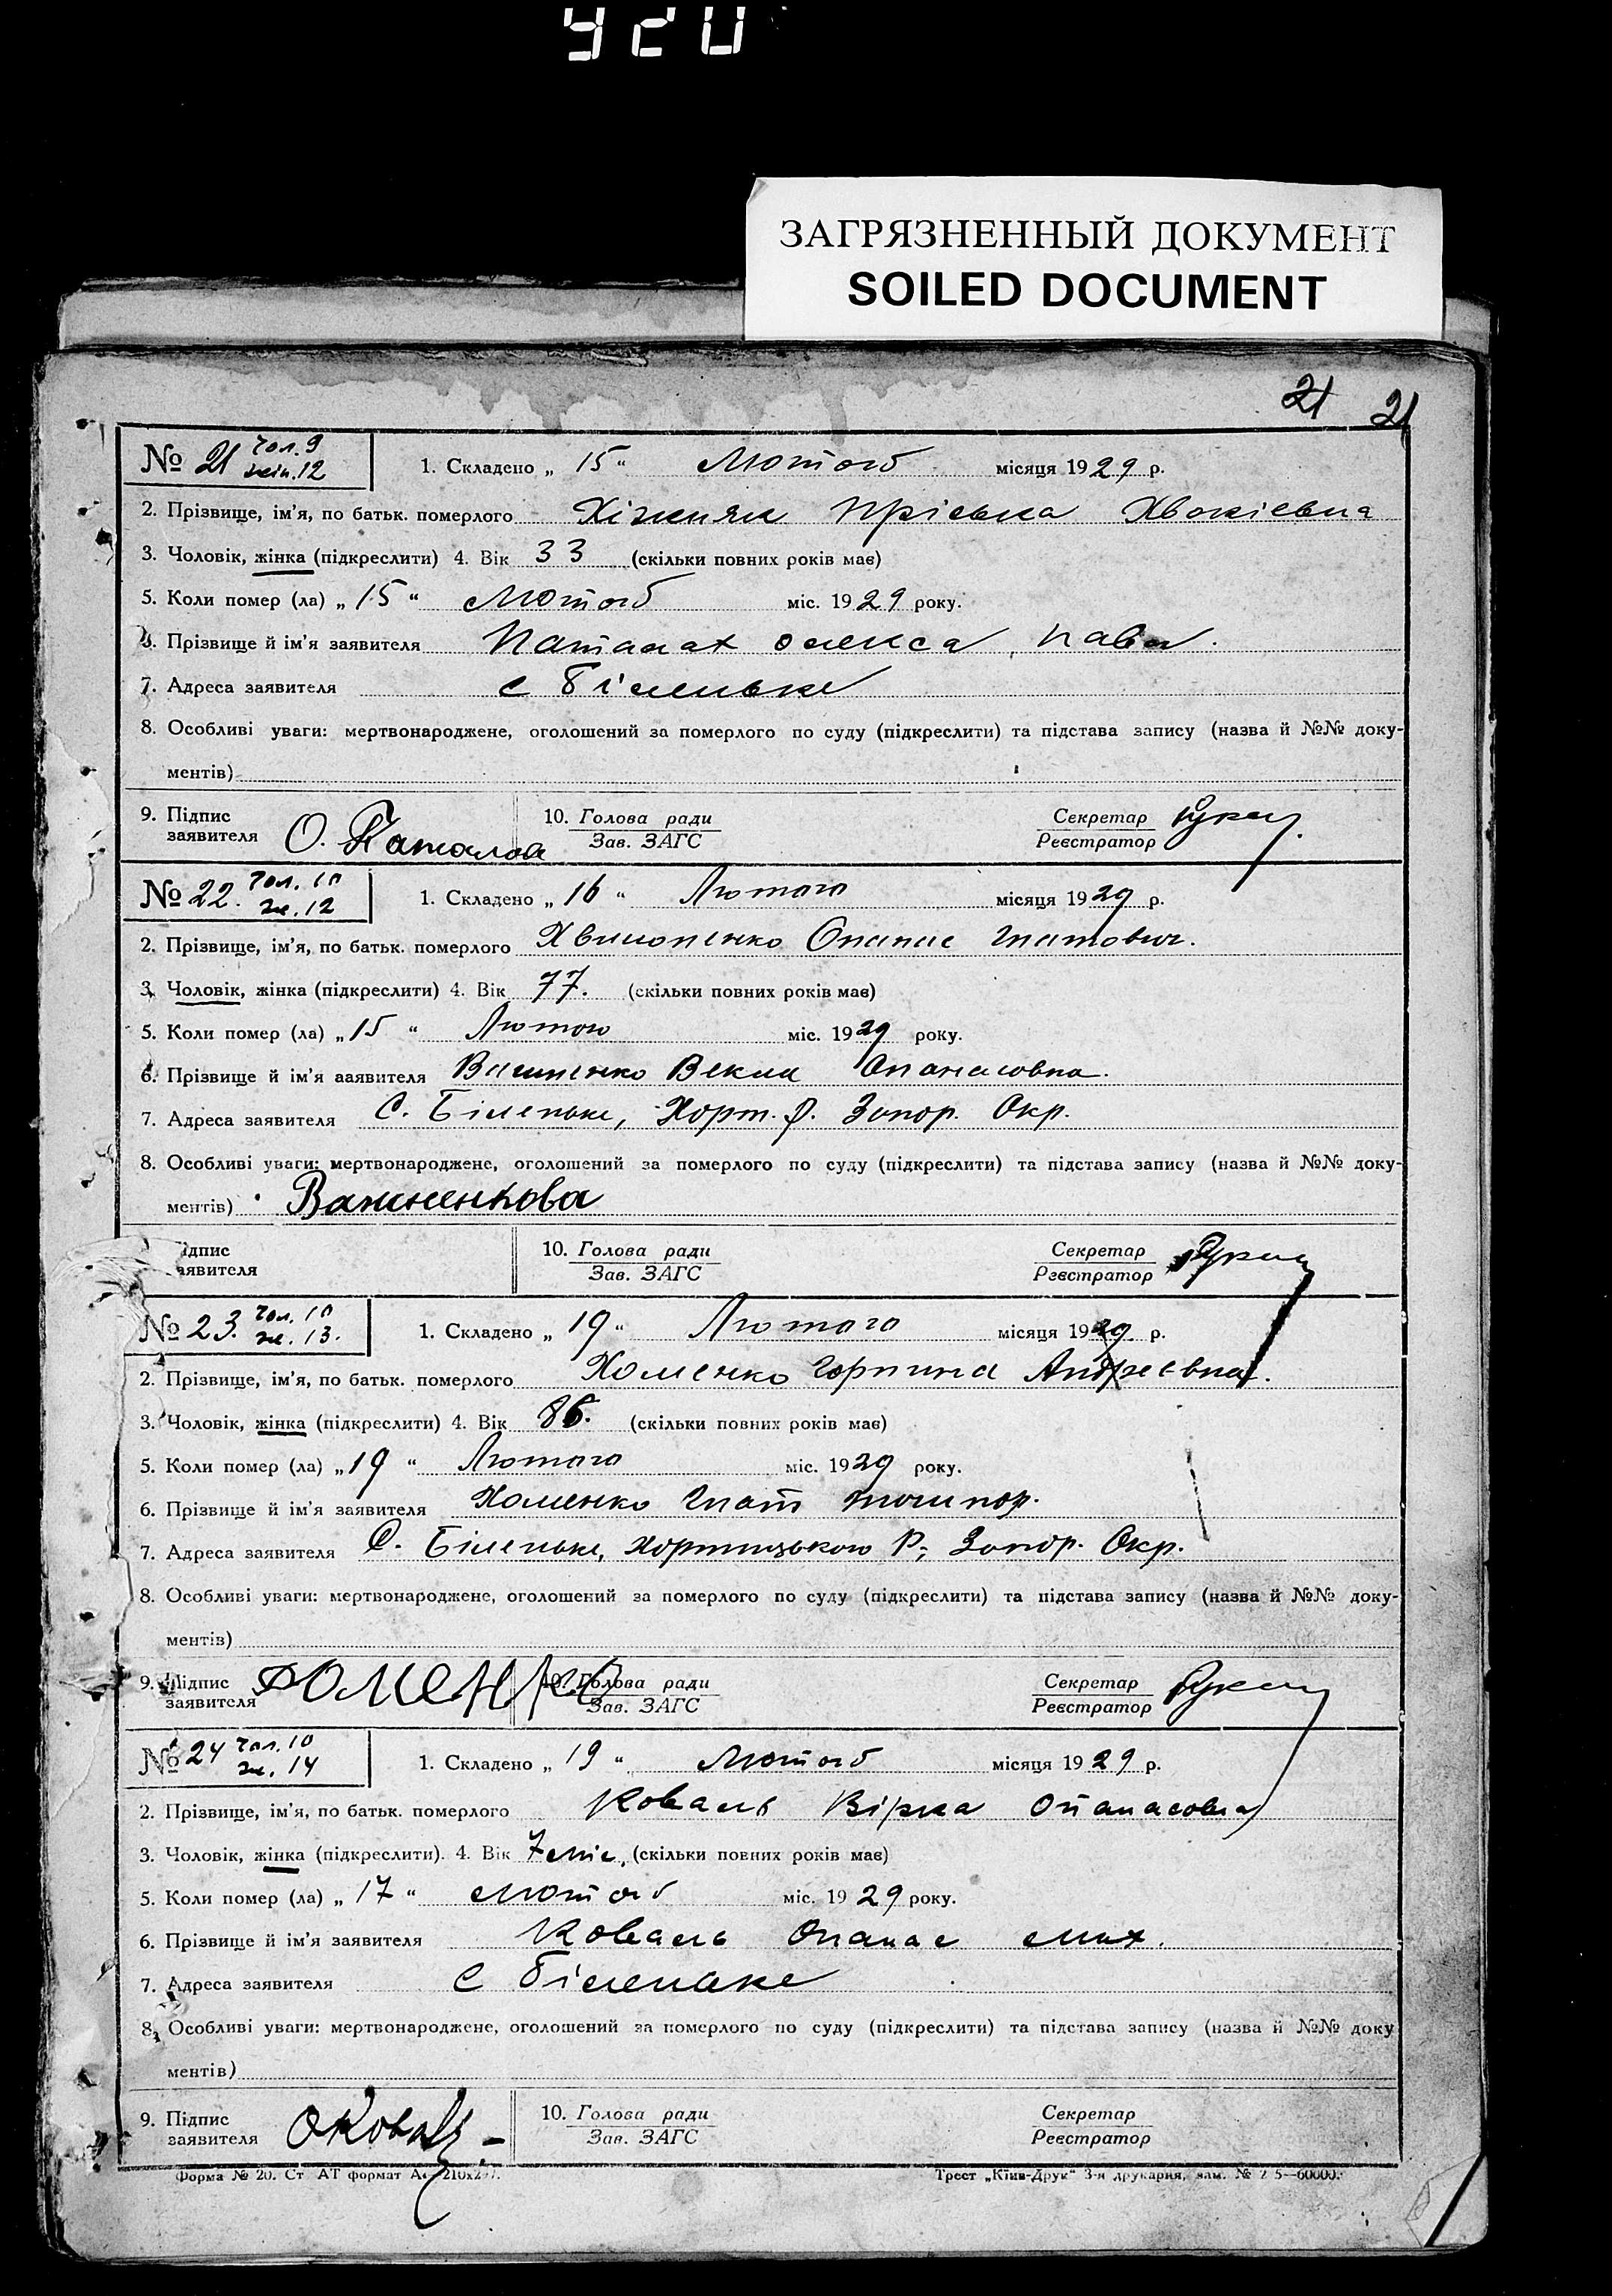 ЗАГРЯЗНЕННЫЙ ДОКУМЕНТ
SOILED DOCUMENT
21 21
№ 21 чол. 9
жін. 12
1. Складено „ 15 “ Лютого місяця 1929 р.
2. Прізвище, ім’я, по батьк. померлого Хіжняк Прієька Хвокіевна
3. Чоловік, жінка (підкреслити) 4. Вік 33 (скільки повних років має)
5. Коли помер (ла) „ 15 “ Лютого міс. 1929 року.
6. Прізвище й ім’я заявителя Олекса
7. Адреса заявителя с Біленьке
8. Особливі уваги: мертвонароджене, оголошений за померлого по суду (підкреслити) та підстава запису (назва й №№ доку-
ментів)
9. Підпис
заявителя О.
10. Голова ради
Зав. ЗАГС
Секретар
Реєстратор
№ 22. чол. 10
ж. 12
1. Складено „ 16 “ Лютого місяця 1929 р.
2. Прізвище, ім’я, по батьк. померлого Опанас Гнатович.
3. Чоловік, жінка (підкреслити) 4. Вік 77. (скільки повних років має)
5. Коли помер (ла) „ 15 “ Лютого міс. 1929 року.
6. Прізвище й ім’я заявителя Векла Опанасовна.
7. Адреса заявителя С. Біленьке, Хорт. Р. Запор. Окр.
8. Особливі уваги: мертвонароджене, оголошений за померлого по суду (підкреслити) та підстава запису (назва й №№ доку-
ментів) Важненкова
ідпис
аявителя
10. Голова ради
Зав. ЗАГС
Секретар
Реєстратор
№ 23. чол. 10
ж. 13.
1. Складено „ 19 “ Лютого місяця 1929 р.
2. Прізвище, ім’я, по батьк. померлого Хоменко Горпина Андреевна.
3. Чоловік, жінка (підкреслити) 4. Вік 86. (скільки повних років має)
5. Коли помер (ла) „ 19 “ Лютого міс. 1929 року.
6. Прізвище й ім’я заявителя Хоменко Гнат
7. Адреса заявителя С. Біленьке, Хортицького Р; Запор. Окр.
8. Особливі уваги: мертвонароджене, оголошений за померлого по суду (підкреслити) та підстава запису (назва й №№ доку-
ментів)
9. Підпис
заявителя Хоменко
10. Голова ради
Зав. ЗАГС
Секретар
Реєстратор
№ 24 чол. 10
ж. 14
1. Складено „ 19 “ Лютого місяця 1929 р.
2. Прізвище, ім’я, по батьк. померлого Коваль Вірка Опанасовна
3. Чоловік, жінка (підкреслити). 4. Вік 7 міс. (скільки повних років має)
5. Коли помер (ла) „ 17 “ Лютого міс. 1929 року.
6. Прізвище й ім’я заявителя Коваль Опанас Мих.
7. Адреса заявителя с Біленьке
8. Особливі уваги: мертвонароджене, оголошений за померлого по суду (підкреслити) та підстава запису (назва й №№ доку
ментів)
9. Підпис
заявителя О Коваль
10. Голова ради
Зав. ЗАГС
Секретар
Реєстратор
Форма № 20. Ст АТ формат
Трест „Київ-Друк“ 3-я друкарня, 60000.